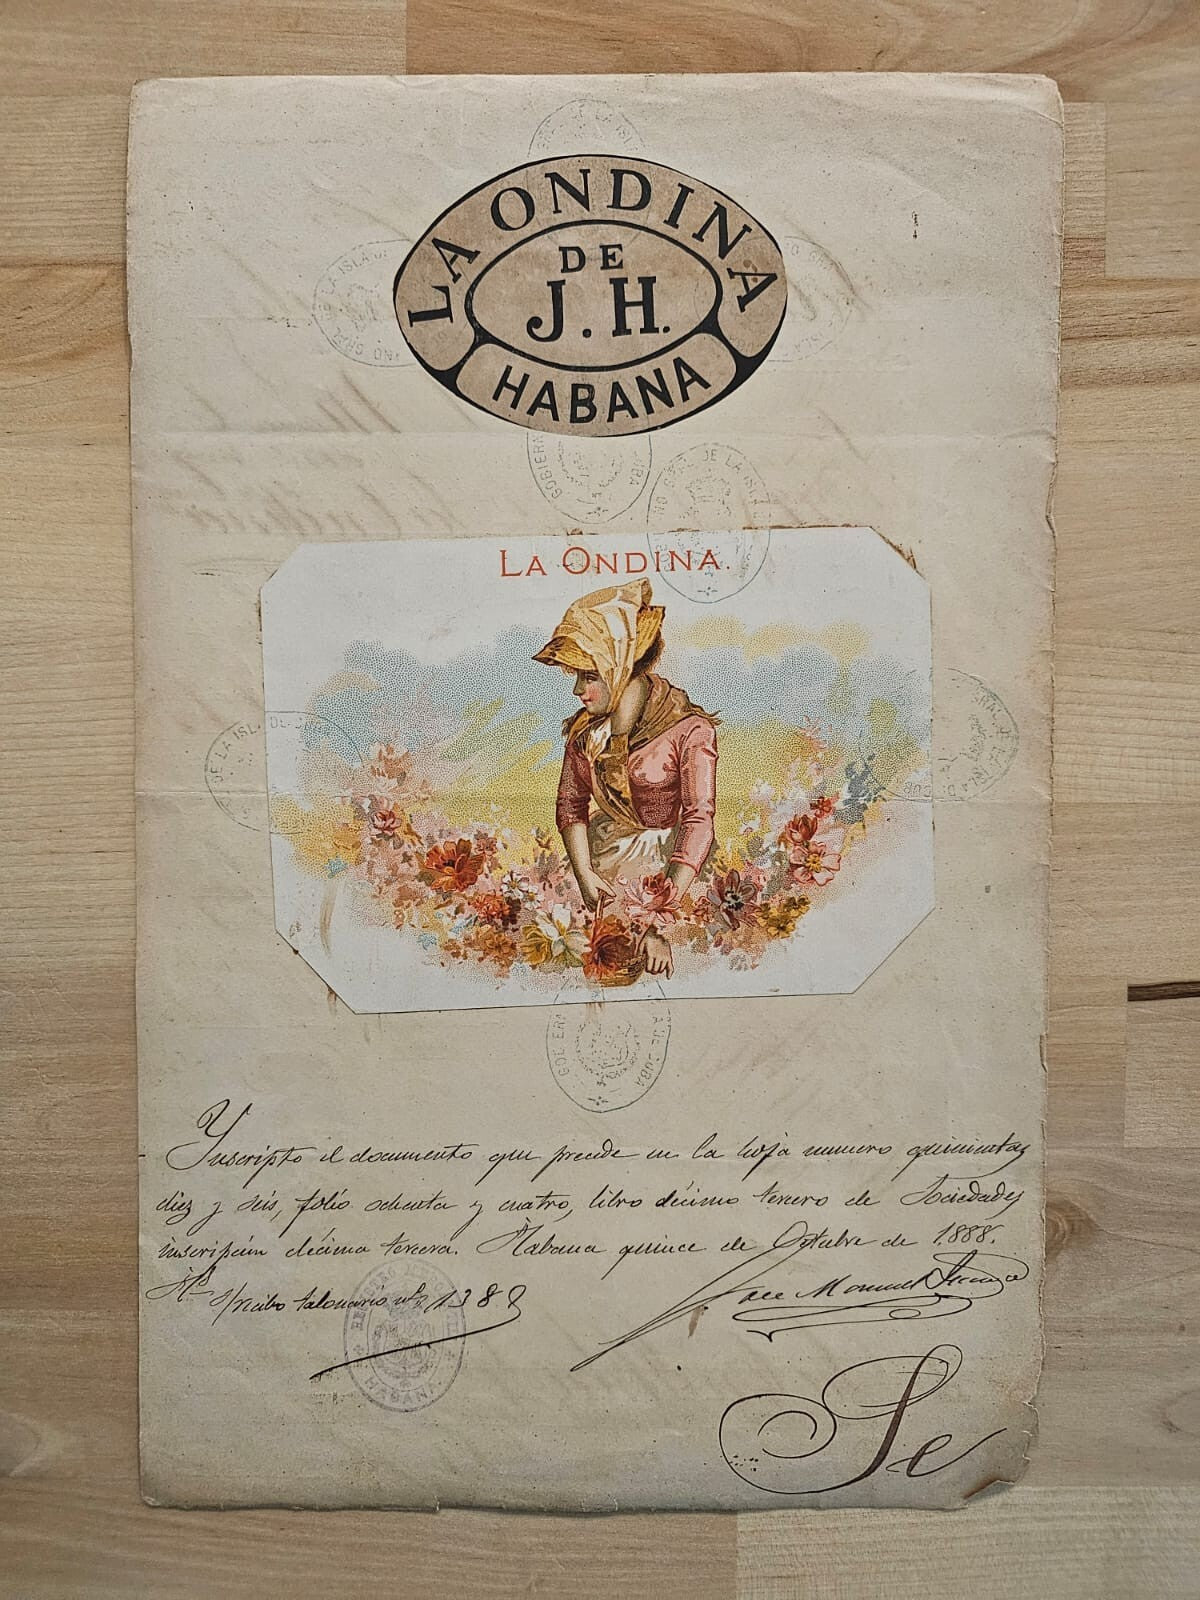 LA ONDINA
DE
J. H.
HABANA
LA ONDINA.
Ynscripto el documento que precede en la hoja numero quinientas
diez y seis, folio ochenta y cuatro, libro décimo tercero de Sociedades
inscripción décima tercera. Habana quince de Octubre de 1888.
s/recibo talonario nº 138
José Manuel
GOBIERNO GRAL DE LA ISLA DE CUBA
HABANA